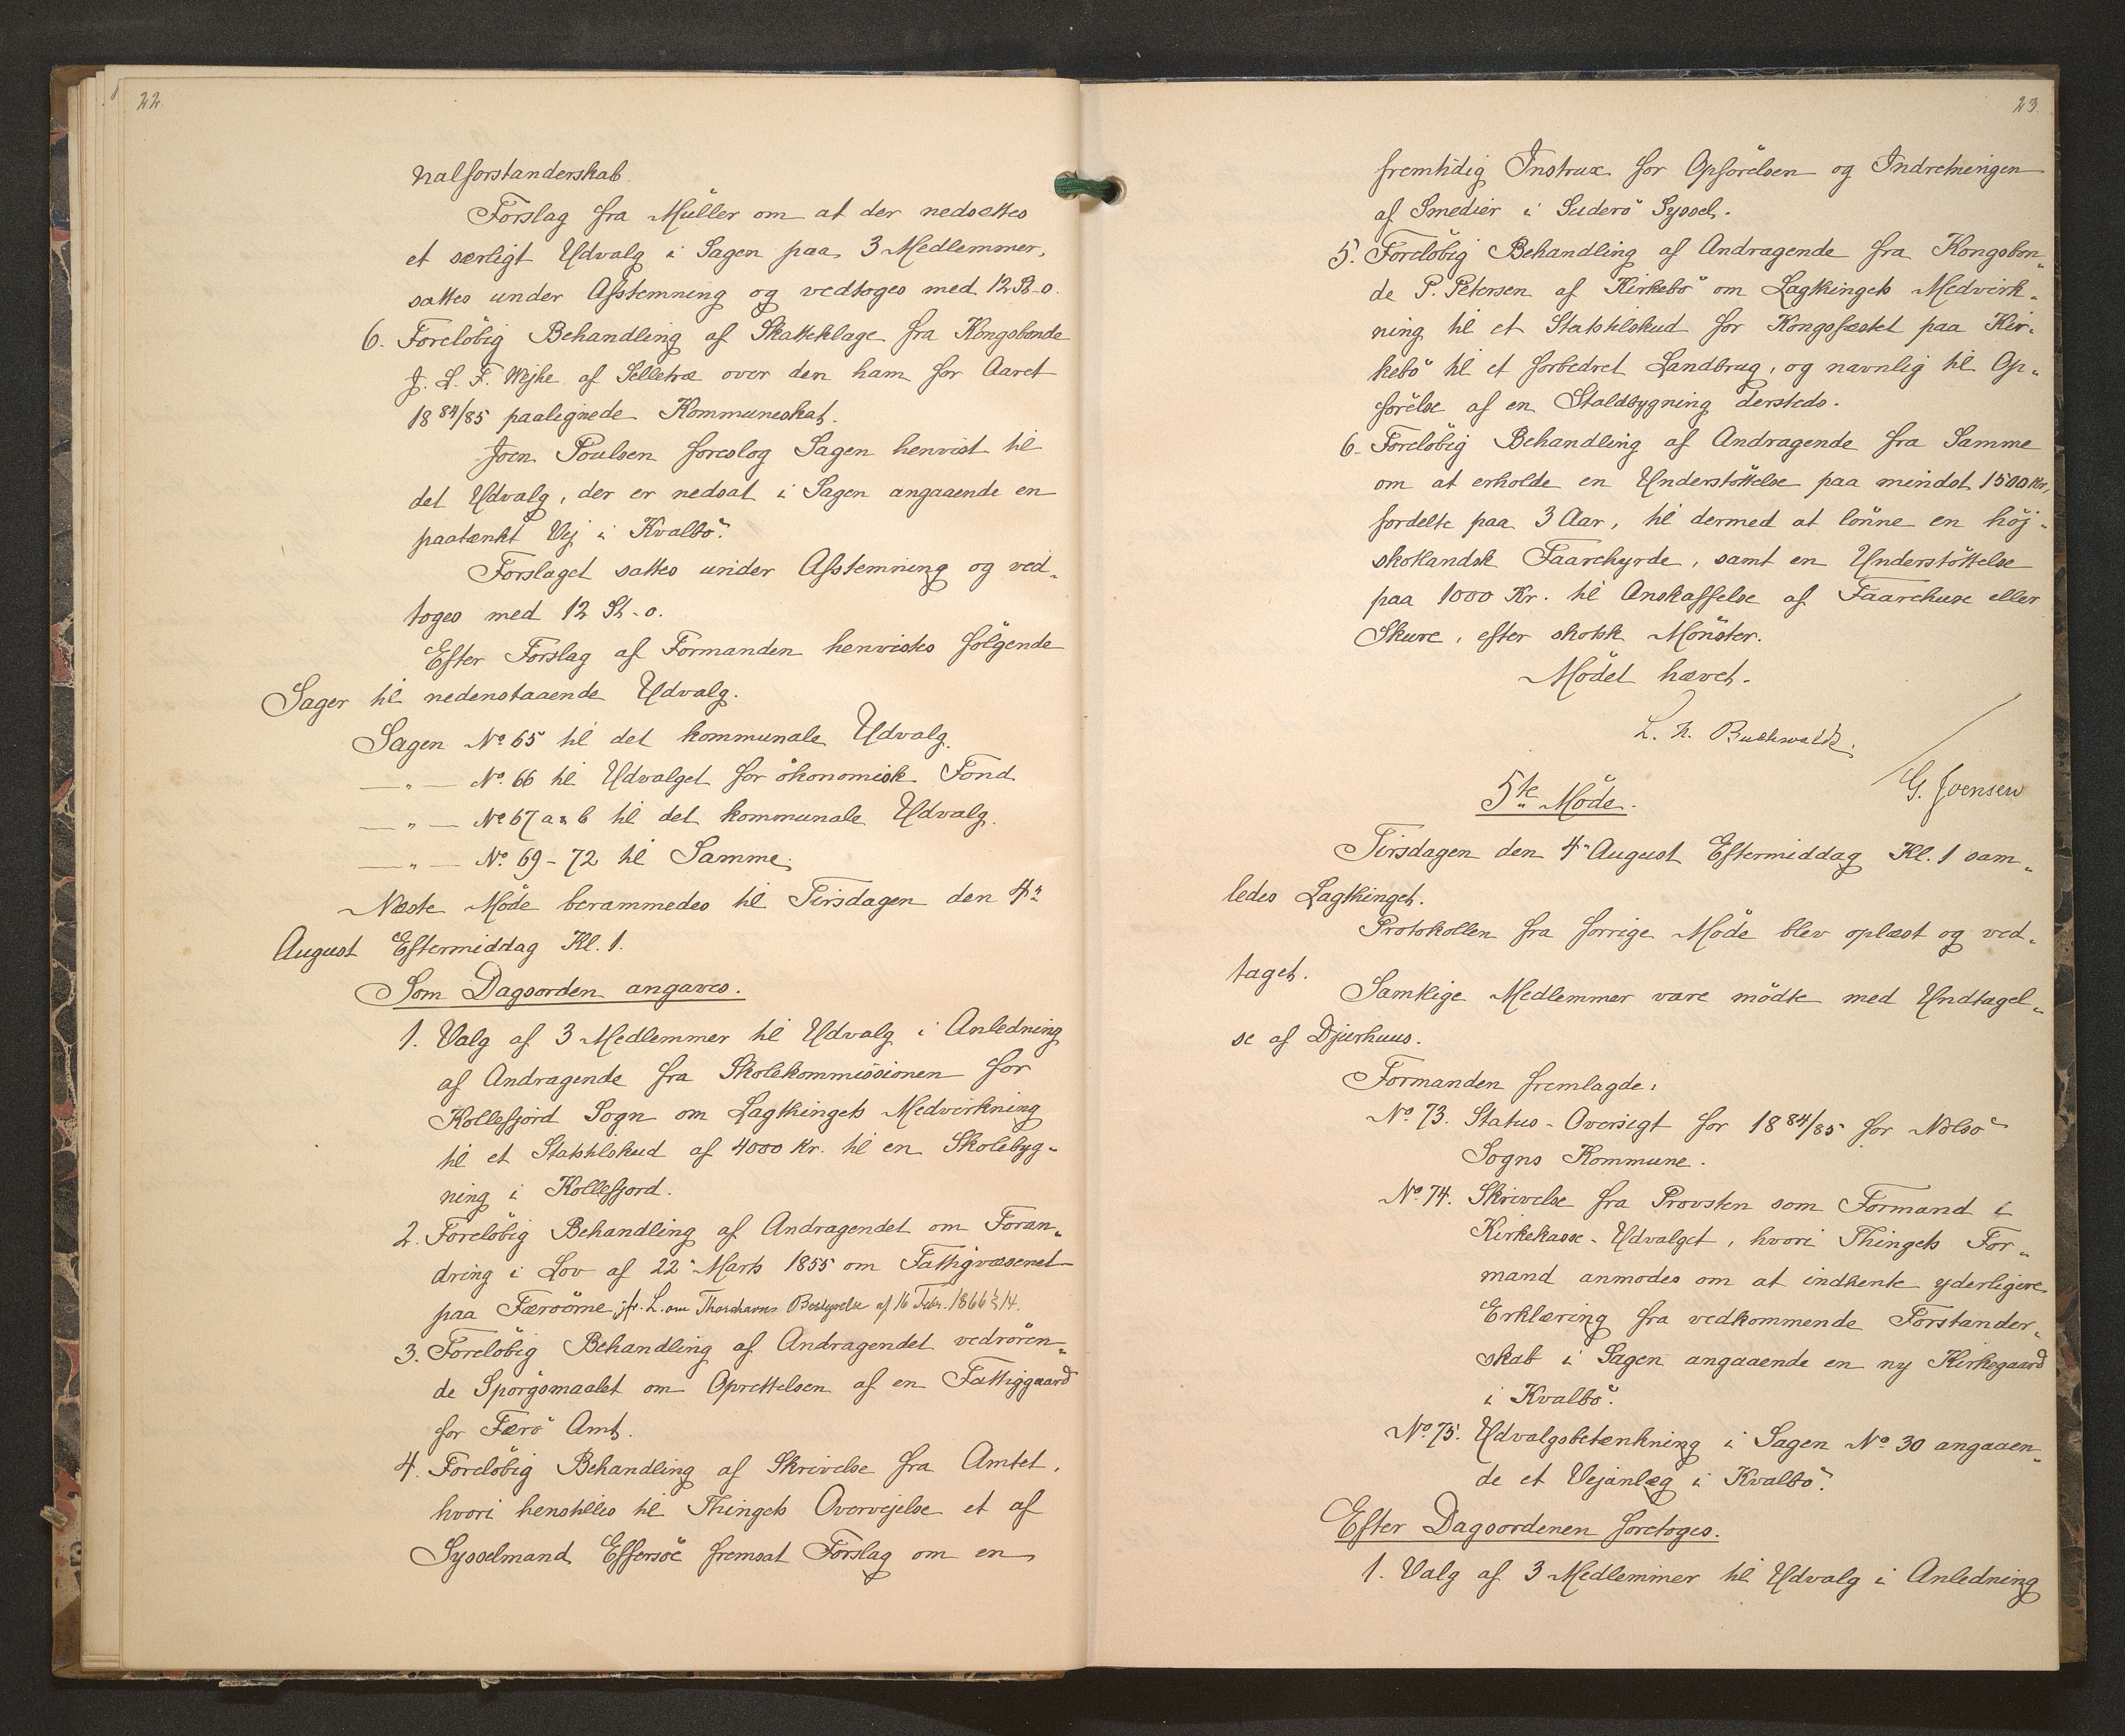 22.
nalforstanderskab.
Forslag fra Müller om at der nedsættes
et særligt Udvalg i Sagen paa 3 Medlemmer,
sattes under Afstemning og vedtoges med 12 St-0.
6. Foreløbig Behandling af Skatteklage fra Kongsbonde
J. L. F. Wejhe af Selletræ over den ham for Aaret
1884/85 paalignede Kommuneskat.
Joen Poulsen foreslog Sagen henvist til
det Udvalg, der er nedsat i Sagen angaaende en
paatænkt Vej i Kvalbö.
Forslaget sattes under Afstemning og ved„
toges med 12 St-0.
Efter Forslag af Formanden henvistes fölgende
Sager til nedenstaaende Udvalg.
Sagen No 65 til det kommunale Udvalg.
— „ — No. 66 til Udvalget for ökonomisk Fond
— „ — No 67 a & b til det kommunale Udvalg.
— „ — No. 69-72 til Samme.
Næste Möde berammedes til Tirsdagen den 4"
August Eftermiddag Kl. 1.
Som Dagsorden angaves.
1. Valg af 3 Medlemmer til Udvalg i Anledning
af Andragende fra Skolekommissionen for
Kollefjord Sogn om Lagthingets Medvirkning
til et Statstilskud af 4000 Kr. til en Skolebyg-
ning i Kollefjord.
2. Forelöbig Behandling af Andragendet om Foran„
dring i Lov af 22" Marts 1855 om Fattigvæsenet
paa Færöerne, jfr. L. om Thorshavns Bestyrelse af 16 Febr. 1866 § 14.
3. Forelöbig Behandling af Andragendet vedrören„
de Spörgsmaalet om Oprettelsen af en Fattiggaard
for Færö Amt.
4. Forelöbig Behandling af Skrivelse fra Amtet,
hvori henstilles til Thingets Overvejelse et af
Sysselmand Effersöe fremsat Forslag om en
23.
fremtidig Instrux for Opförelsen og Indretningen
af Smedier i Suderö Syssel.
5. Forelöbig Behandling af Andragende fra Kongsbon„
de P. Petersen af Kirkebö om Lagthingets Medvirk„
ning til et Statstilskud for Kongsfæstet paa Kir„
kebö til et forbedret Landbrug, og navnlig til Op„
förelse af en Staldbygning dersteds.
6. Forelöbig Behandling af Andragende fra Samme
om at erholde en Understöttelse paa mindst 1500 Kr,
fordelte paa 3 Aar, til dermed at lönne en höj-
skotlandsk Faarehyrde, samt en Understöttelse
paa 1000 Kr. til Anskaffelse af Faarehuse eller
Skure, efter skotsk Mönster.
Mödet hævet.
L. N. Buchwaldt.
G. Joensen
5te Möde.
Tirsdagen den 4" August Eftermiddag Kl. 1 sam„
ledes Lagthinget.
Protokollen fra forrige Möde blev oplæst og ved„
taget.
Samtlige Medlemmer vare mödte med Undtagel„
se af Djurhuus.
Formanden fremlagde:
No. 73. Status-Oversigt for 1884/85 for Nolsö
Sogns Kommune.
No. 74. Skrivelse fra Provsten som Formand i
Kirkekasse-Udvalget, hvori Thingets For„
mand anmodes om at indhente yderligere
Erklæring fra vedkommende Forstander„
skab i Sagen angaaende en ny Kirkegaard
i Kvalbö.
No. 75. Udvalgsbetænkning i Sagen No. 30 angaaen„
de et Vejanlæg i Kvalbö.
Efter Dagsordenen foretoges.
1. Valg af 3 Medlemmer til Udvalg i Anledning